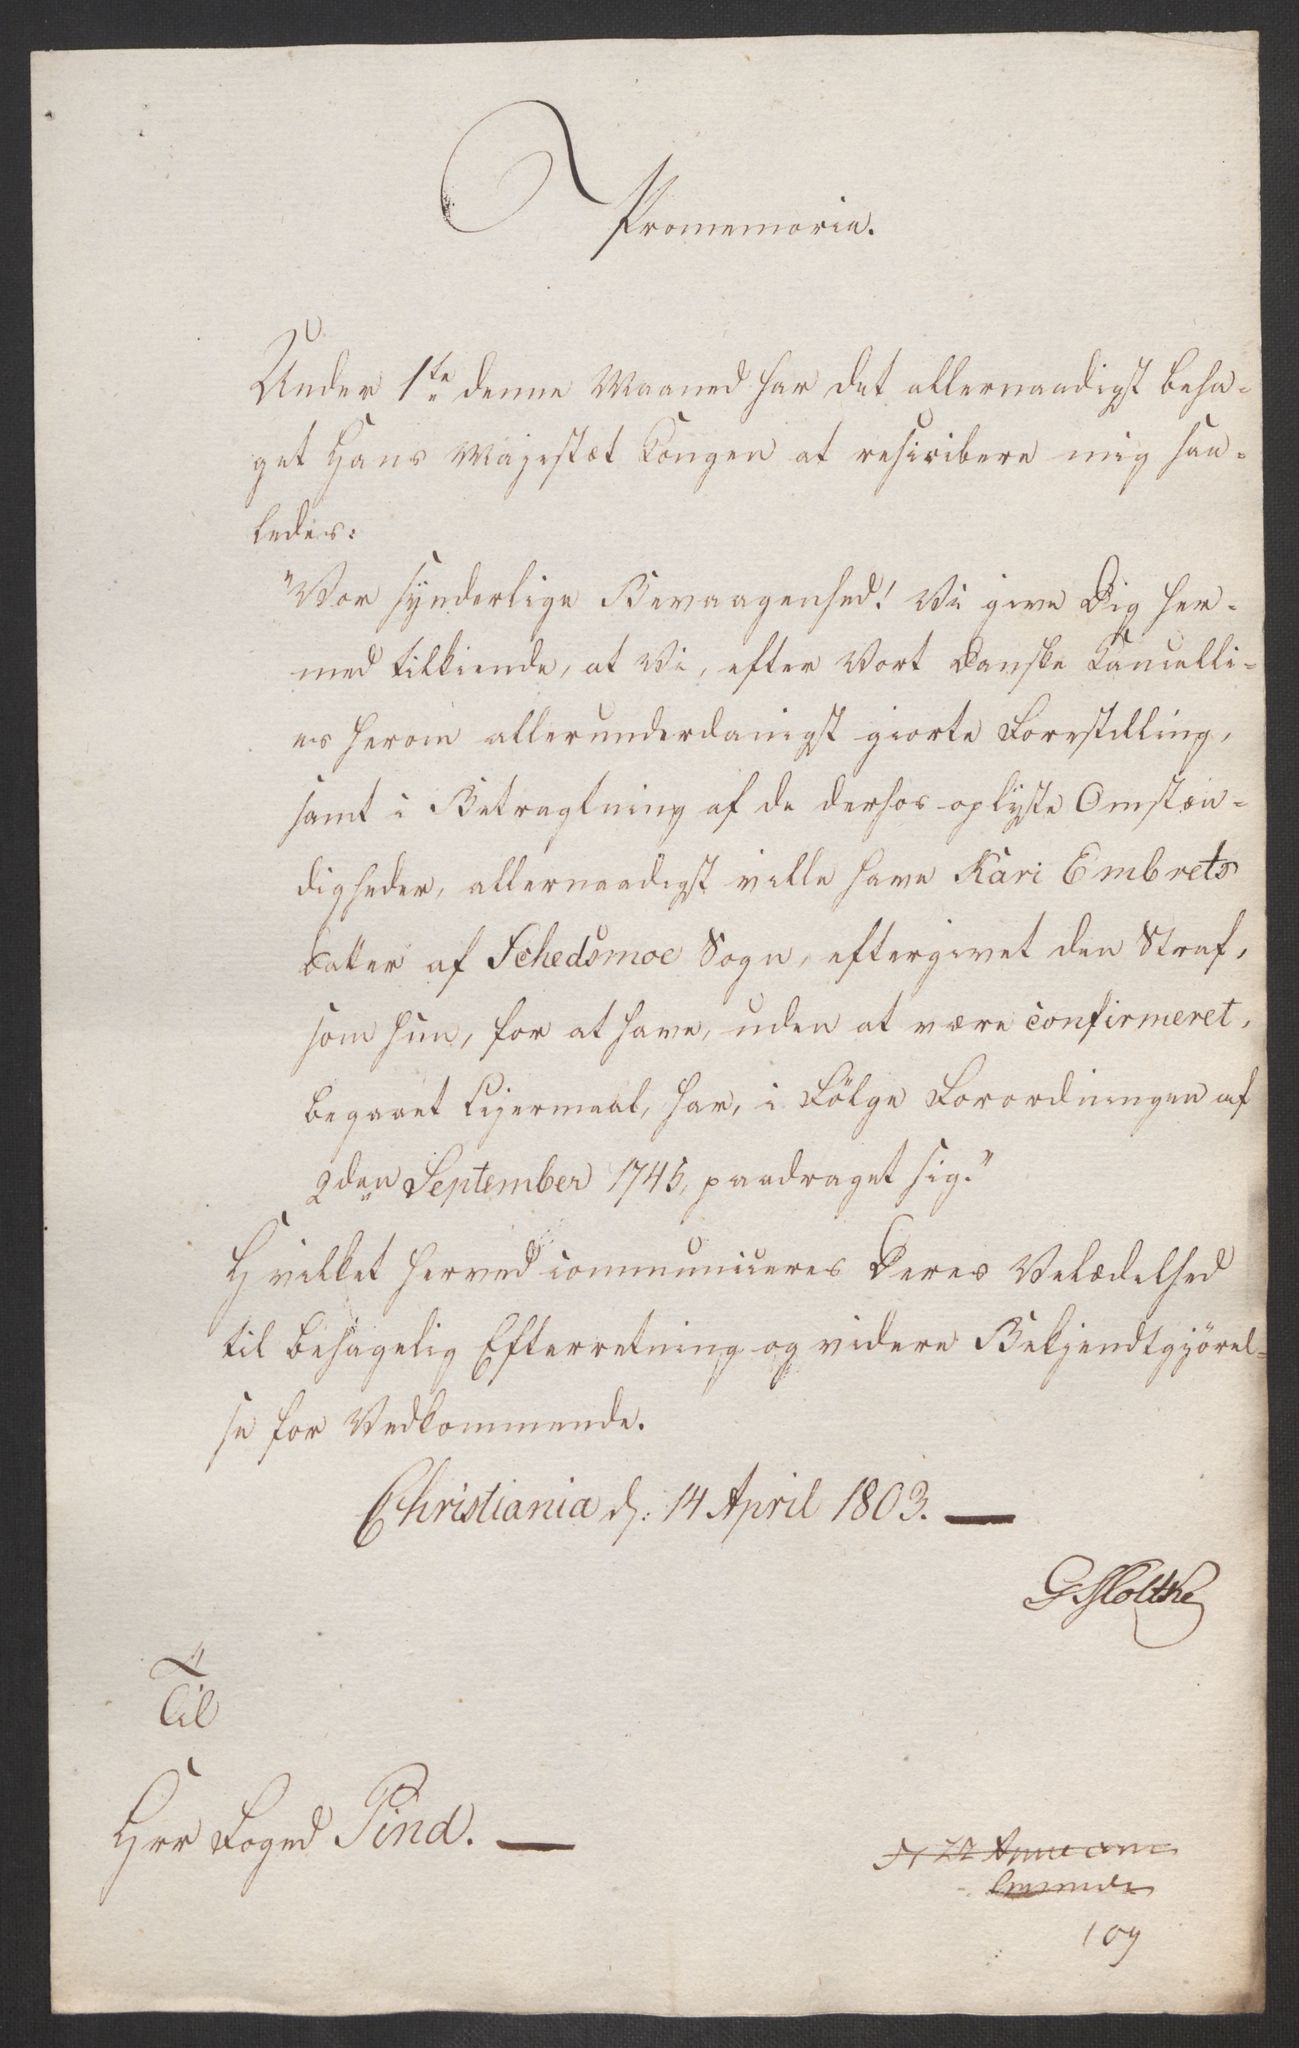 Promemoria.
Under 1te denne Maaned har det allernaadigst beha-
get Hans Majestæt Kongen at rescribere mig saa-
ledes:
"Vor synderlige Bevaagenhed! Vi give Dig her-
med tilkiende, at Vi, efter Vort Danske Cancelli-
es herom allerunderdanigst giorte Forestilling,
samt i Betragtning af de derhos oplyste Omstæn-
digheder, allernaadigst ville have Kari Embrets
Datter af Schedsmoe Sogn, eftergivet den Straf,
som hun, for at have, uden at være confirmeret,
begaaet Lejermaal, har, i Følge Forordningen af
2den September 1745, paadraget sig."
Hvilket herved communiceres Deres Velædelhed
til behagelig Efterretning og videre Bekjendtgjörel-
se for Vedkommende.
Christiania d: 14 April 1803.
G Moltke
Til
Herr Foged Pind.
109